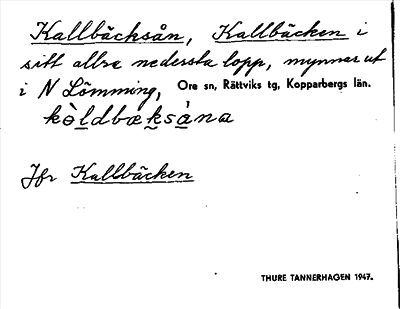 Kallbäcksån, Kallbäcken i
sitt allra nedersta lopp, mynnar ut
i N Lömming, Ore sn, Rättviks tg, Kopparbergs län.
kòldbæksána
Jfr Kallbäcken
THURE TANNERHAGEN 1947.